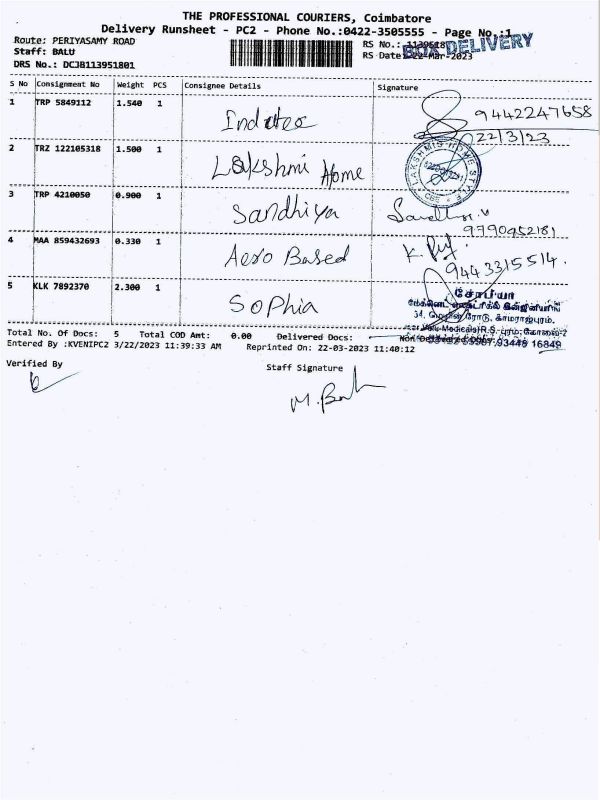 THE PROFESSIONAL COURIERS, Coimbatore
Delivery Runsheet - PC2 - Phone No.:0422-3505555 - Page No.:1
BOX DELIVERY
Route: PERIYASAMY ROAD
RS No.: 1139518
Staff: BALU
RS Date: 22-Mar-2023
DRS No.: DCJB113951801
S No Consignment No Weight PCS Consignee Details Signature
1 TRP 5849112 1.540 1 Indutec 9442247658
22/3/23
2 TRZ 122105318 1.500 1 Lakshmi Home
LAKSHMI'S HOME STYLE
CBE
3 TRP 4210050 0.900 1 Sandhiya
9790952181
4 MAA 859432693 0.330 1 Aero Based
9443315514.
5 KLK 7892370 2.300 1 Sophia
சோபியா
34, ரோடு, காமராஜபுரம்,
Medicals)R.S. புரம், கோவை-2
93449 16849
Total No. Of Docs: 5 Total COD Amt: 0.00 Delivered Docs:
Entered By :KVENIPC2 3/22/2023 11:39:33 AM Reprinted On: 22-03-2023 11:40:12
Verified By
Staff Signature